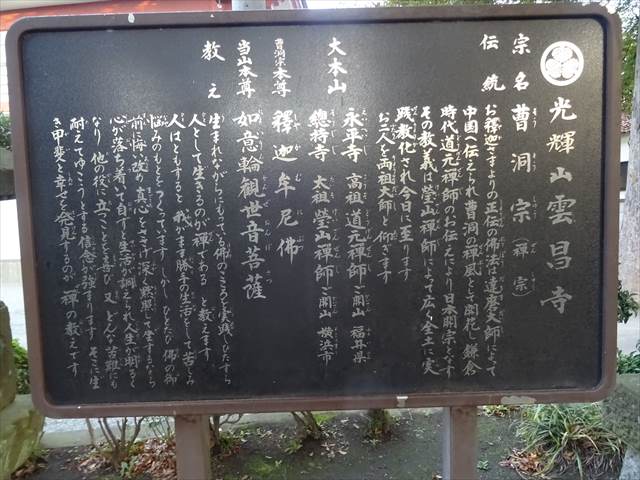 光輝山雲昌寺
宗名 曹洞宗（禅宗）
伝統 お釋迦さまよりの正伝の佛法は達磨大師によって
中国へ伝えられ曹洞の禅風として開花し鎌倉
時代道元禅師のお伝えにより日本開宗となす
その教義は瑩山禅師によって広く全土に実
践教化され今日に至ります
お二人を両祖大師と仰ぎます
大本山 永平寺 高祖 道元禅師ご開山 福井県
總持寺 太祖 瑩山禅師ご開山 横浜市
曹洞宗本尊 釋迦牟尼佛
当山本尊 如意輪観世音菩薩
教え 生まれながらにもっている佛のこころを実践しひたすら
人として生きるのが禅である と教えます
人はともすると 我がまま勝手の生活をして苦しみ
悩みのもとをつくっています しかし ひとたび 佛の御
前に悔い改め真心をささげ 深く黙照して坐するなら
心が落ち着いて自ずと生活が調えられ人生が明るく
なり 他の役に立つことを喜び 又 どんな苦難にも
耐えてゆこうとする信念が強まります そこに生
き甲斐と幸せを発見するのが 禅の教えです